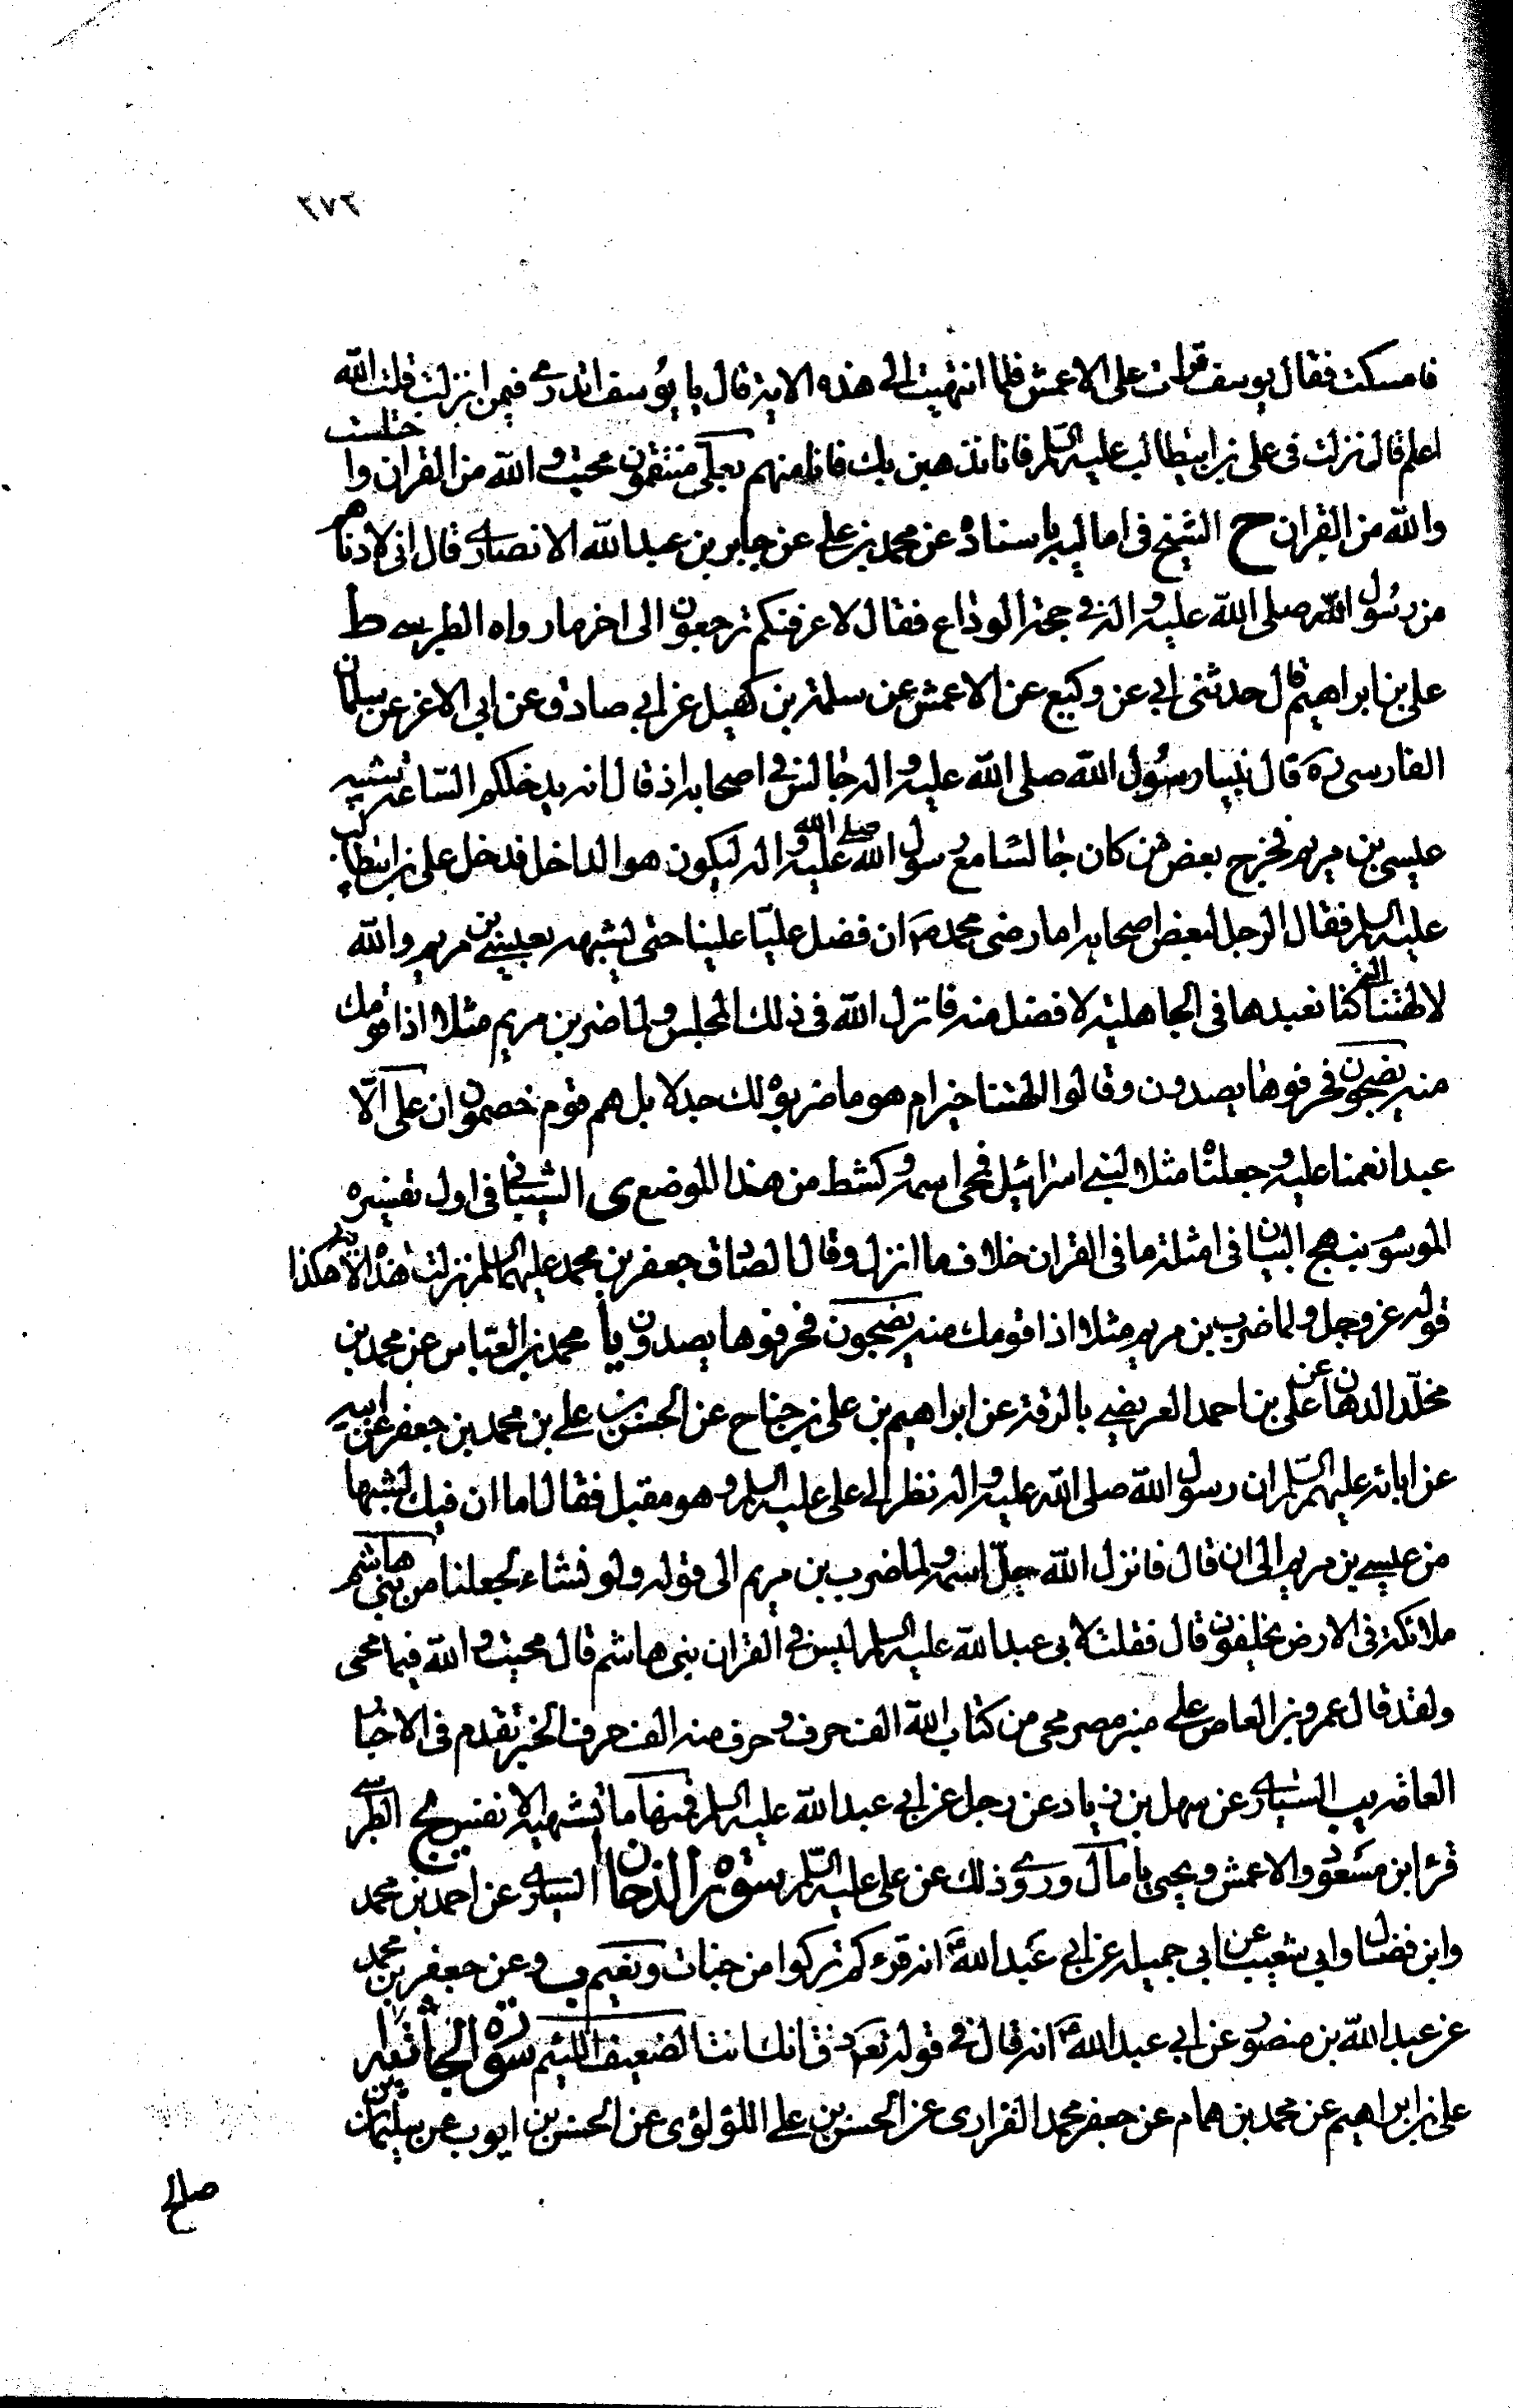 ٢٧٣
فامسكت فقال يوسف قرات على الاعمش فلما انتهيت الى هذه الاية قال يا يوسف اتدرى فيمن انزلت قلت الله
اعلم قال نزلت فى على بن ابيطالب عليه السلم فاما نذهبن بك فانا منهم بعلى منتقمون محيت والله من القران واختلست
والله من القران ح الشيخ فى اماليه باسناده عن محمد بن على عن جابر بن عبدالله الانصارى قال انى لادناهم
من رسول الله صلى الله عليه واله فى حجة الوداع فقال لاعرفنكم ترجعون الى اخر ما رواه الطبرسى ط
على بن ابراهيم قال حدثنى ابى عن وكيع عن الاعمش عن سلمة بن كهيل عن ابى صادق عن ابى الاغر عن سلمان
الفارسى ره قال بينا رسول الله صلى الله عليه واله جالس فى اصحابه اذ قال انه يدخلكم الساعة شبيه
عيسى بن مريم فخرج بعض من كان جالسا مع رسول الله صلى الله عليه واله ليكون هو الداخل فدخل على بن ابيطالب
عليه السلم فقال الرجل لبعض اصحابه اما رضى محمد ص ان فضل عليا علينا حتى يشبهه بعيسى بن مريم والله
لالهتنا التى كنا نعبدها فى الجاهلية لافضل منه فانزل الله فى ذلك المجلس ولما ضرب بن مريم مثلا اذا قومك
منه يضجون فحرفوها يصدون وقالوا الهتنا خير ام هو ما ضربوه لك جدلا بل هم قوم خصمون ان على الا
عبد انعمنا عليه وجعلناه مثلا لبنى اسرائيل فمحى اسمه وكشط من هذا الموضع ى الشيبانى فى اول تفسيره
الموسوم بنهج البيان فى امثلة ما فى القران خلاف ما انزل وقال الصادق جعفر بن محمد عليهما السلم نزلت هذه الاية هكذا
قوله عز وجل ولما ضرب بن مريم مثلا اذا قومك منه يضجون فحرفوها يصدون يا محمد بن العباس عن محمد بن
مخلد الدهان عن على بن احمد العريضى بالرقة عن ابراهيم بن على بن جناح عن الحسن بن على بن محمد بن جعفر عن ابيه
عن ابائه عليهم السلم ان رسول الله صلى الله عليه واله نظر الى على عليه السلم وهو مقبل فقال اما ان فيك لشبها
من عيسى بن مريم الى ان قال فانزل الله جل اسمه ولما ضرب بن مريم الى قوله ولو نشاء لجعلنا من بنى هاشم
ملائكة فى الارض يخلفون قال فقلت لابى عبدالله عليه السلم ليس فى القران بنى هاشم قال محيت والله فيما محى
ولقد قال عمرو بن العاص على منبر مصر محى من كتاب الله الف حرف وحرف منه الف حرف الخبر تقدم فى الاخبار
العامة يب السيارى عن سهل بن زياد عن رجل عن ابى عبدالله عليه السلم فمنها ما تشتهيه الانفس يج الطبرسى
قرء ابن مسعود والاعمش ويحيى يا مال وروى ذلك عن على عليه السلم سورة الدخان ا السيارى عن احمد بن محمد
وابن فضال وابى شعيب عن ابى جميلة عن ابى عبدالله ع انه قرء كم تركوا من جنات ونعيم ب وعن جعفر بن محمد
عن عبدالله بن منصور عن ابى عبدالله ع انه قال فى قوله تع ذق انك انت الضعيف اللئيم سورة الجاثية ا
على بن ابراهيم عن محمد بن همام عن جعفر محمد الفزارى عن الحسن بن على اللؤلؤى عن الحسن بن ايوب عن سليمان بن
صالح